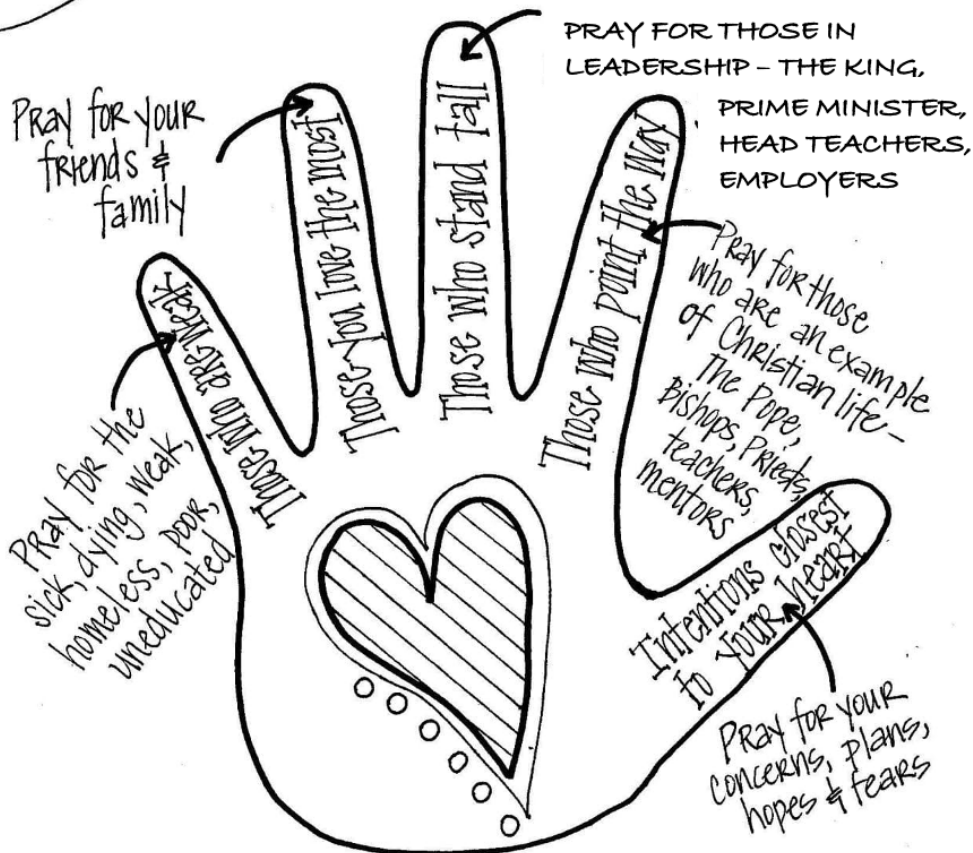 PRAY FOR THOSE IN
LEADERSHIP – THE KING,
PRIME MINISTER,
HEAD TEACHERS,
EMPLOYERS
Pray for your
friends &
family
Those you love the most
Those who stand tall
Those who point the way
Pray for those
who are an example
of Christian life –
The Pope,
Bishops, Priests,
teachers,
mentors
Those who are weak
Pray for the
sick, dying, weak,
homeless, poor,
uneducated
Intentions closest
to your heart
Pray for your
concerns, plans,
hopes & fears